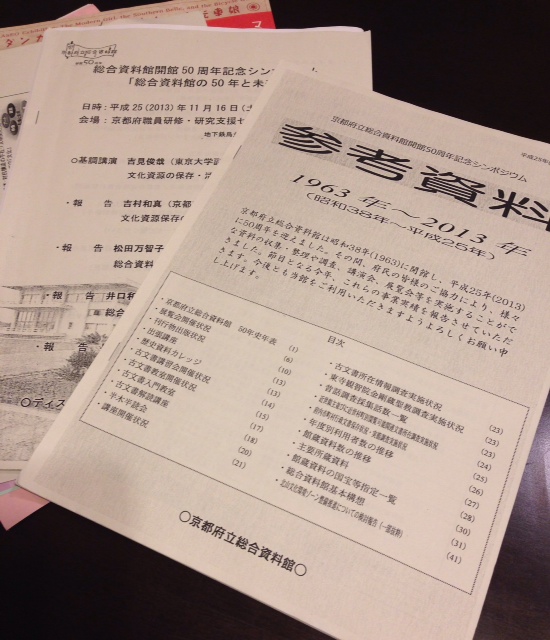 The Modern Girl, the Southern Belle, and the
総合資料館開館50周年記念シン
「総合資料館の50年と未
日時：平成25(2013)年11月16日(土
会場：京都府職員研修・研究支援セ
地下鉄烏丸
○基調講演 吉見俊哉（東京大学
文化資源の保存・活
・報 告 吉村和真（京都
文化資源保存の
・報 告 松田万智子
総合資料
・報 告 井口和
総合
・報 告
○ディス
京都府立総合資料館開館50周年記念シンポジウム
平成25年
参考資料
1963年～2013年
（昭和38年～平成25年）
京都府立総合資料館は昭和38年(1963)に開館し、平成25年(2013)
に50周年を迎えました。その間、府民の皆様のご協力により、様々
な資料の収集・整理や調査、講演会、展覧会等を実施することがで
きました。節目となる今年、これらの事業実績を報告させていただ
きます。今後とも当館をご利用いただきますようよろしくお願い申
し上げます。
目次
・京都府立総合資料館 50年史年表 (1)
・展覧会開催状況 (6)
・刊行物出版状況 (10)
・出張講座 (13)
・歴史資料カレッジ (13)
・古文書講習会開催状況 (14)
・古文書教室開催状況 (15)
・古文書入門教室 (17)
・古文書解読講座 (18)
・半木半読会 (20)
・講座開催状況 (21)
・古文書所在情報調査実施状況 (23)
・東寺観智院金剛蔵聖教調査実施状況 (23)
・昔話調査採集話数一覧 (23)
・年度別利用者数の推移 (26)
・館蔵資料数の推移 (27)
・主要所蔵資料 (28)
・館蔵資料の国宝等指定一覧 (30)
・総合資料館基本構想 (31)
(41)
○京都府立総合資料館○